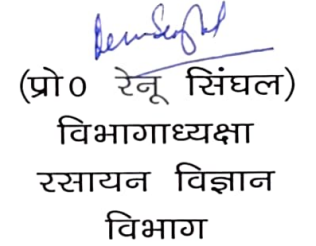 (प्रो0 रेनू सिंघल)
विभागाध्यक्षा
रसायन विज्ञान
विभाग